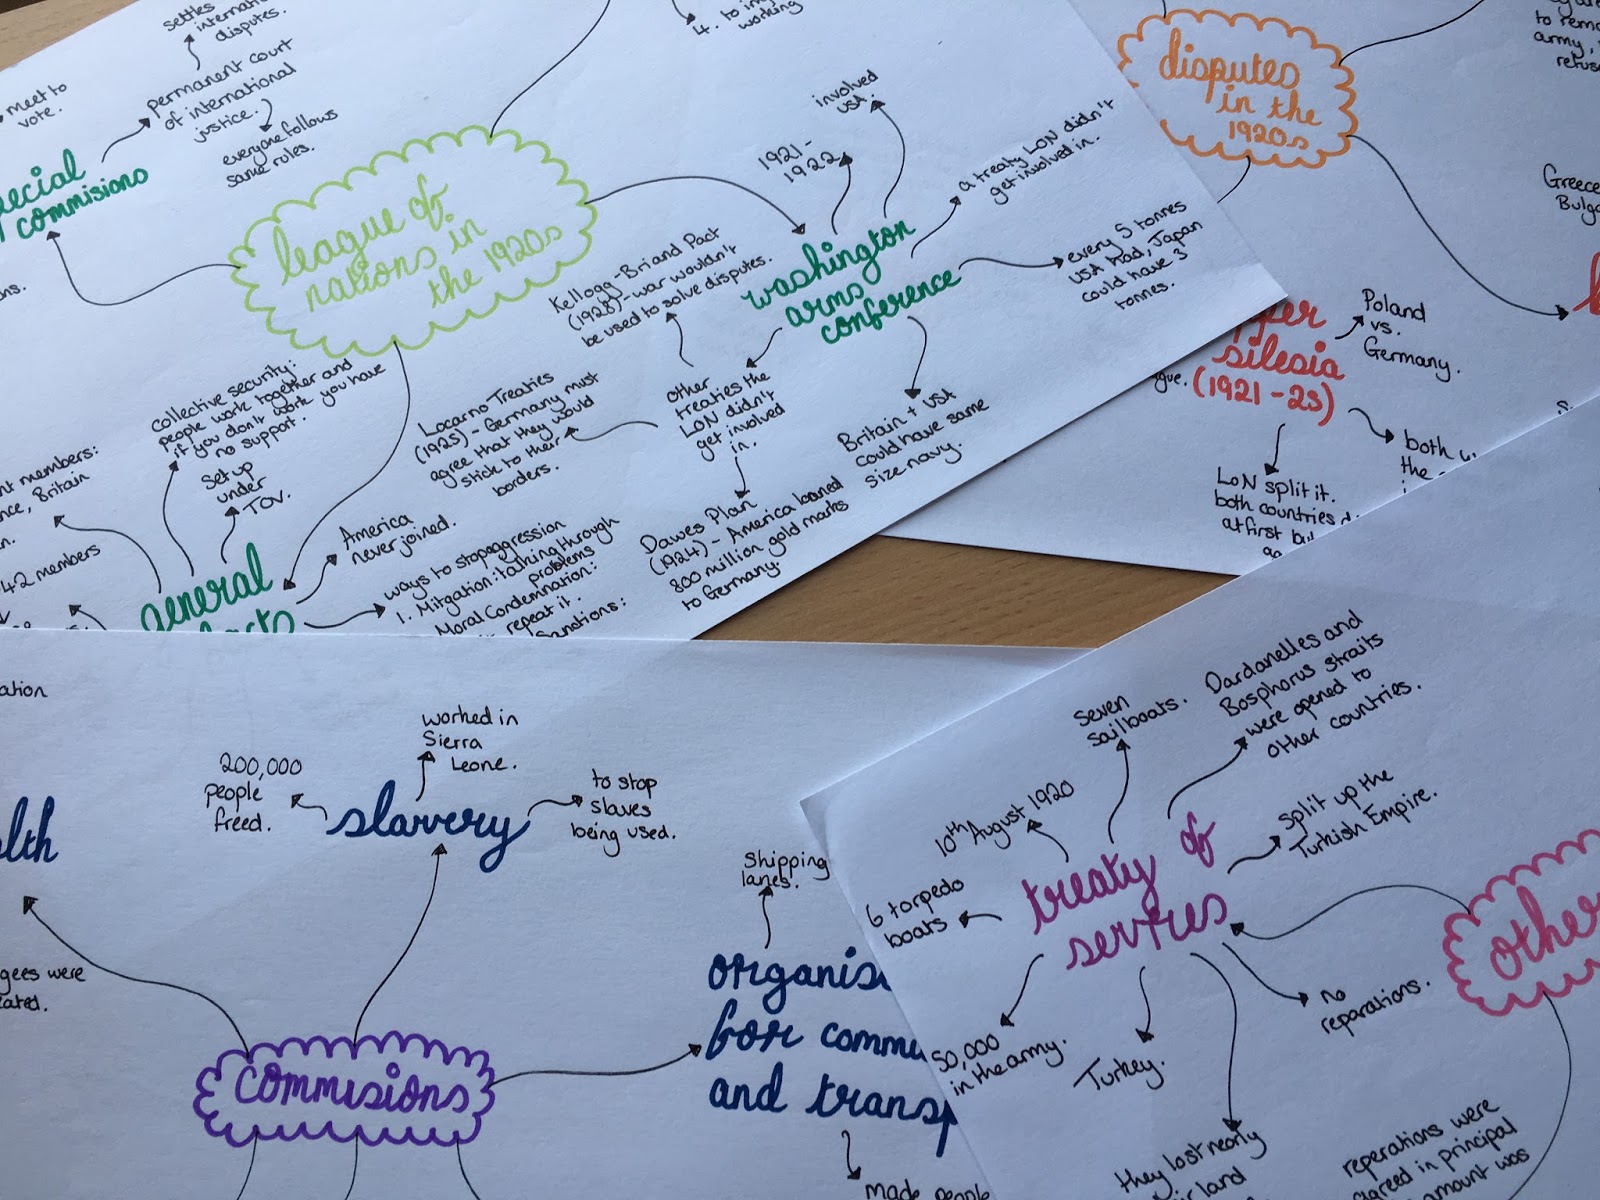 settles
internation
disputes.
permanent court
of international
justice.
everyone follows
same rules.
meet to
vote.
ecial
commisions
ns.
league of
nations in
the 1920s
4. to im
working
1921-
1922
involved
USA.
a treaty LON didn't
get involved in.
washington
arms
conference
every 5 tonnes
USA had, Japan
could have 3
tonnes.
Britain + USA
could have same
size navy.
other
treaties the
LON didn't
get involved
in.
Kellogg-Briand Pact
(1928)-war wouldn't
be used to solve disputes.
Locarno Treaties
(1925)-Germany must
agree that they would
stick to their
borders.
Dawes Plan
(1924)-America loaned
800 million gold marks
to Germany.
collective security:
people work together and
if you don't work you have
no support.
set up
under
TOV.
nt members:
nce, Britain
n.
42 members
general
America
never joined.
ways to stop aggression
1. Mitgation: talking through
problems
Moral Condemnation:
repeat it.
Sanctions:
disputes
in the
1920s
to remo
army,
refuse
Greece
Bulga
pper
silesia
(1921-23)
gue.
Poland
vs.
Germany.
both w
the
LoN split it.
both countries
at first bu
ation
lth
gees were
eated.
200,000
people
freed.
worked in
Sierra
Leone.
slavery
to stop
slaves
being used.
commisions
shipping
lanes.
organis
for commu
and transp
made people
seven
sailboats.
Dardanelles and
Bosphorus straits
were opened to
other countries.
10th August 1920
split up the
Turkish Empire.
6 torpedo
boats
treaty of
servres
50,000
in the army.
Turkey.
no
reparations.
they lost nearly
land
other
reperations were
agreed in principal
amount was